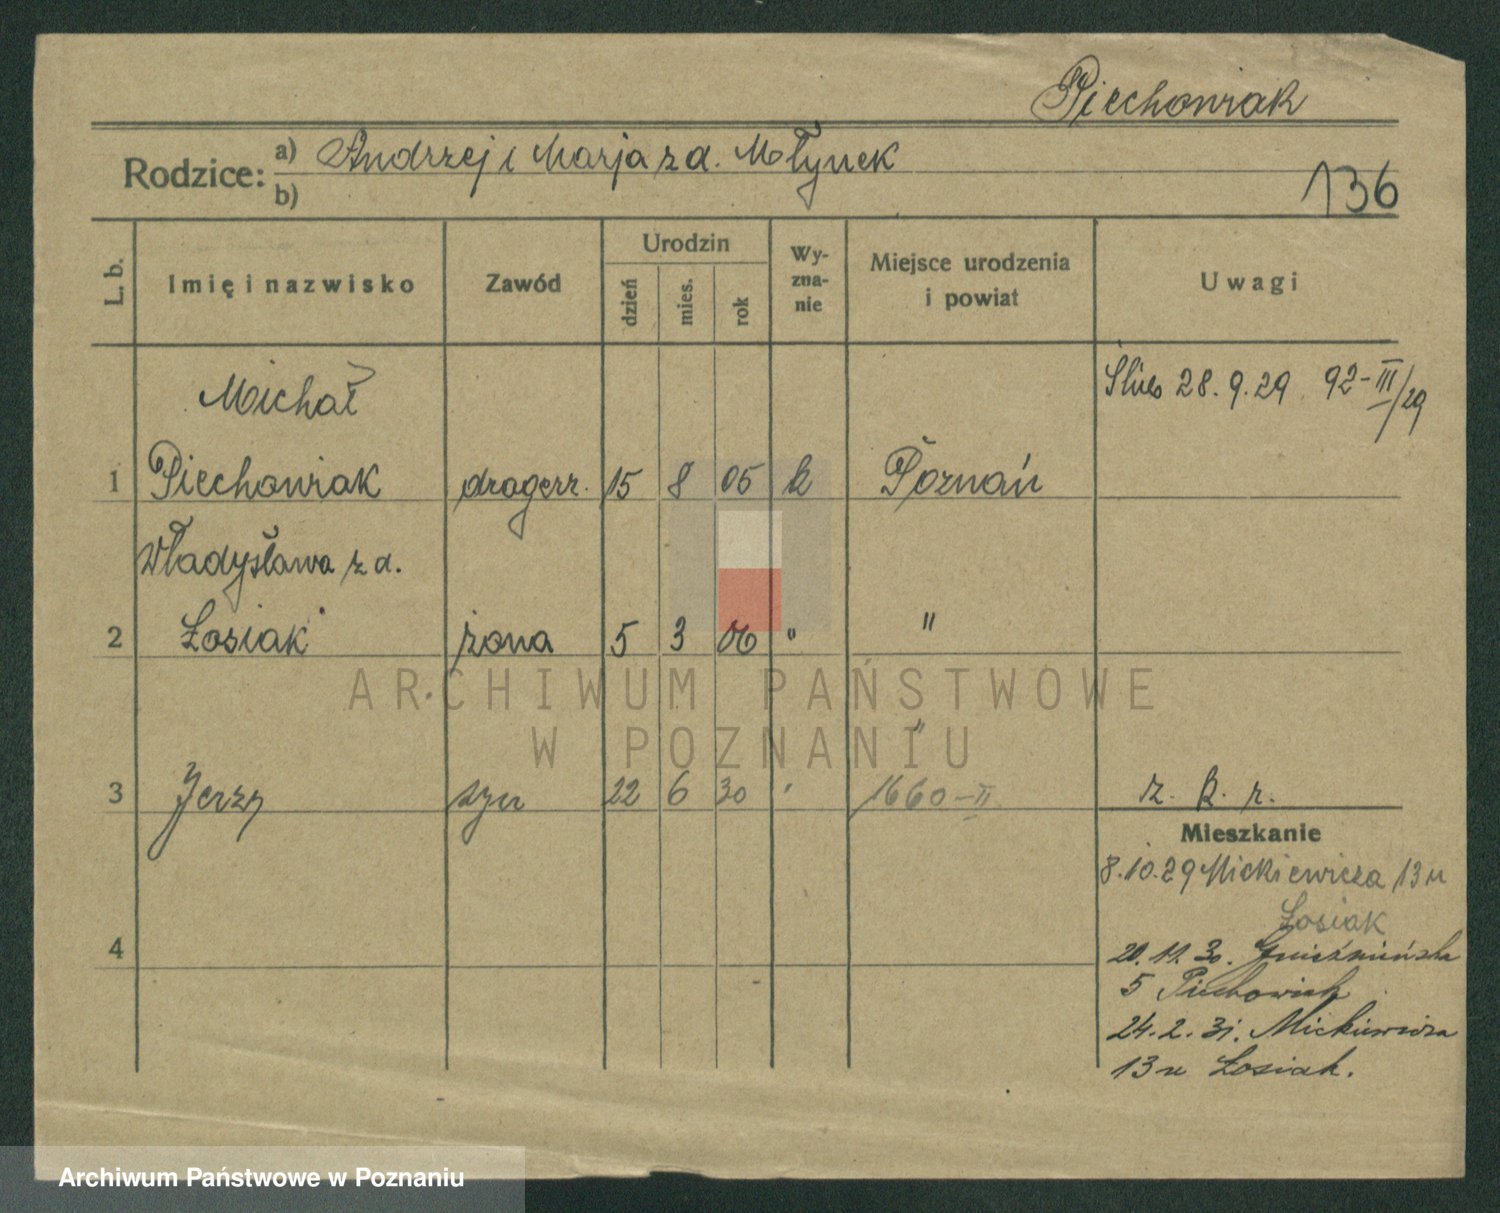 Piechowiak
Rodzice: a) Andrzej i Marja z d. Młynek
b)
136
L. b.
Imię i nazwisko
Zawód
Urodzin
dzień
mies.
rok
Wy-
zna-
nie
Miejsce urodzenia
i powiat
Uwagi
Ślub 28. 9. 29 92-III/29
Michał
1 Piechowiak drogerz. 15 8 05 k Poznań
Władysława z d.
2 Łosiak żona 5 3 06 " "
"
3 Jerzy syn 22 6 30 ' 1660-II
r. k. r.
Mieszkanie
8.10.29 Mickiewicza 13 u
Łosiak
4
20. 11. 30. Gnieźnieńska
5 Piechowiak
24. 2. 31. Mickiewicza
13 u Łosiak.
ARCHIWUM PAŃSTWOWE
W POZNANIU
Archiwum Państwowe w Poznaniu